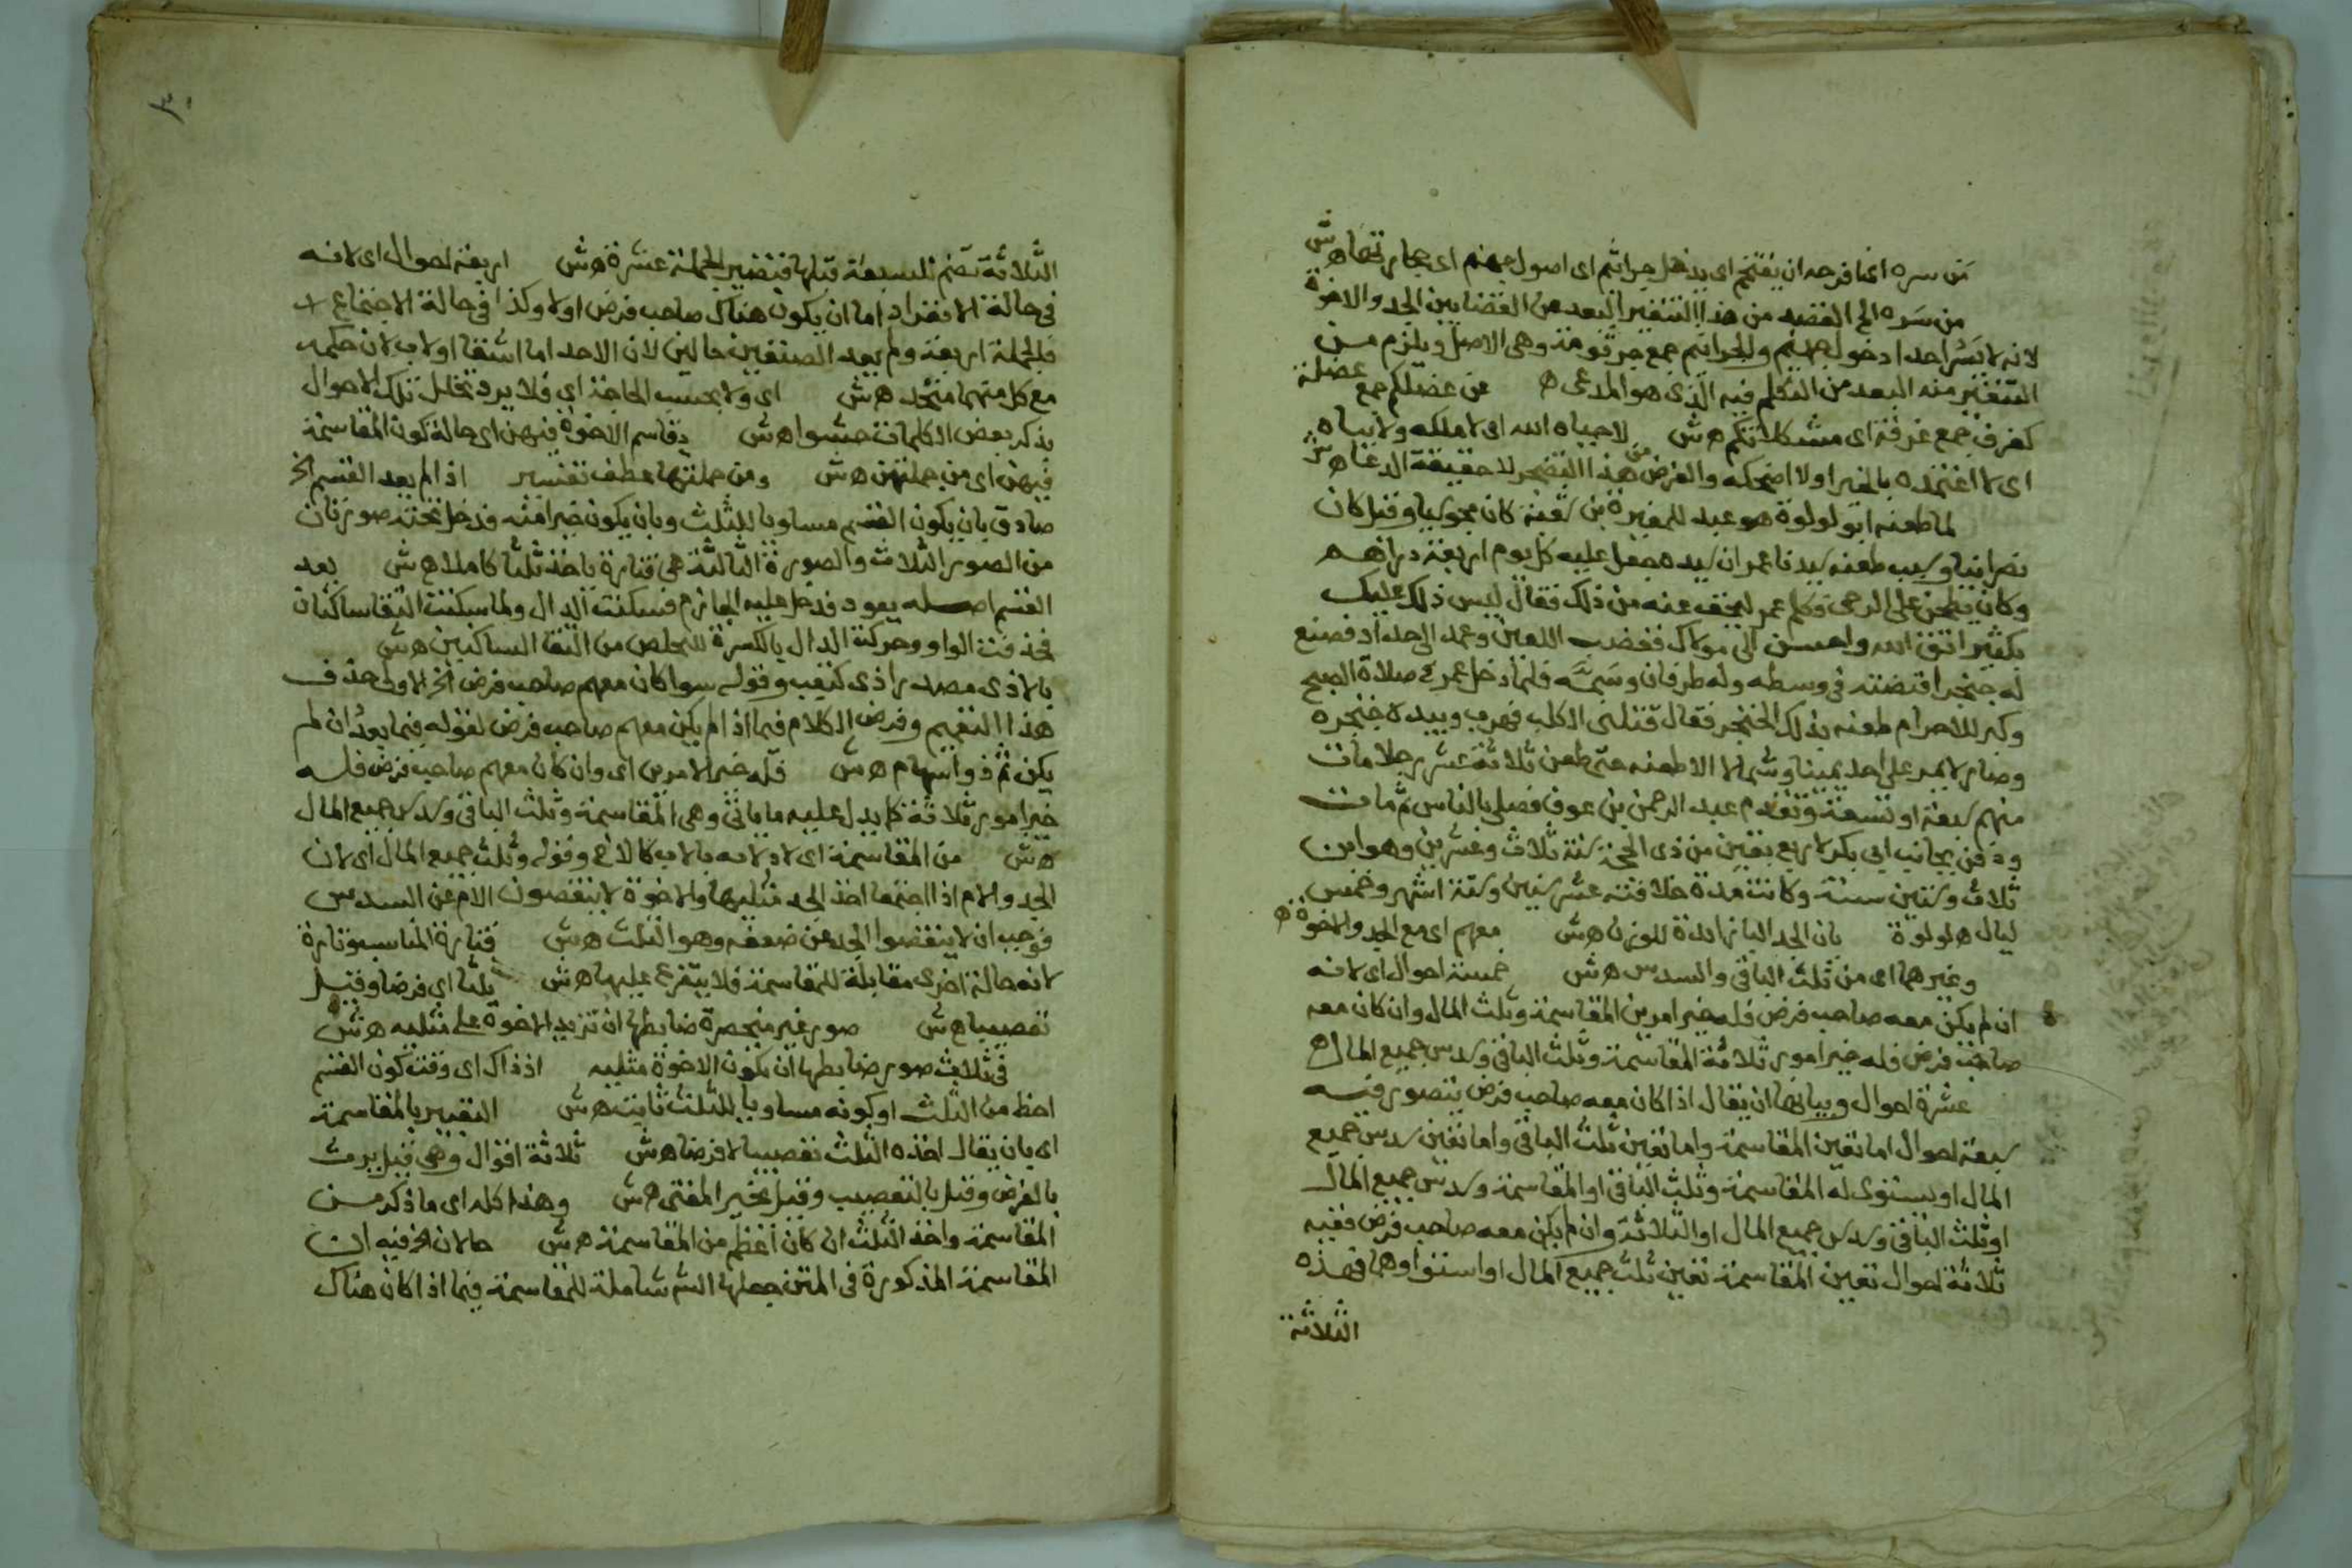 من سره اى افرحه ان يقتحم اى يدخل جراثيم اى اصول جهنم اى حجارتها هش
من سره الخ القصد من هذا التنفير البعد من القضا بين الجد والاخوة
لانه لا يسر احدا دخول جهنم والجراثيم جمع جرثومة وهى الاصل ويلزم من
التنفير منه البعد من التكلم فيه الذى هو المدعى ه عن عضلكم جمع عضلة
كغرف جمع غرفة اى مشكلاتكم هش لا حياه الله اى لا ملكه ولا بياه
اى لا اعتمده بالخير اولا اضحكه والغرض من هذا التضجر لا حقيقة الدعا هش
لما طعنه ابو لولوة هو عبد للمغيرة بن شعبة كان مجوسيا وقيل كان
نصرانيا وسبب طعنه سيدنا عمر ان سيده جعل عليه كل يوم اربعة دراهم
وكان يطحن على الرحى فكلم عمر ليخفف عنه من ذلك فقال ليس ذلك عليك
بكثير اتق الله واحسن الى مولاك فغضب اللعين وعمد الى حداد فصنع
له خنجرا قبضته فى وسطه وله طرفان وسمه فلما دخل عمر فى صلاة الصبح
وكبر للاحرام طعنه بذلك الخنجر فقال قتلنى الكلب فهرب وبيده خنجره
وصار لا يمر على احد يمينا وشمالا الا طعنه حتى طعن ثلاثة عشر رجلا مات
منهم سبعة او تسعة وتقدم عبد الرحمن بن عوف فصلى بالناس ثم مات
ودفن بجانب ابى بكر لاربع بقين من ذى الحجة سنة ثلاث وعشرين وهو ابن
ثلاث وستين سنة وكانت مدة خلافته عشر سنين وستة اشهر وخمس
ليال ه لولوة بان الجد البا زائدة للوزن هش معهم اى مع الجد والاخوة ه
وغيرها اى من ثلث الباقى والسدس هش خمسة احوال اى لانه
ان لم يكن معه صاحب فرض فله خير امرين المقاسمة وثلث المال وان كان معه
صاحب فرض فله خير امور ثلاثة المقاسمة وثلث الباقى وسدس جميع المال ه
عشرة احوال وبيانها ان يقال اذا كان معه صاحب فرض يتصور فيه
سبعة احوال اما تعين المقاسمة واما تعين ثلث الباقى واما تعين سدس جميع
المال او يستوى له المقاسمة وثلث الباقى او المقاسمة وسدس جميع المال
او ثلث الباقى وسدس جميع المال او الثلاثة وان لم يكن معه صاحب فرض ففيه
ثلاثة احوال تعين المقاسمة تعين ثلث جميع المال او استواوهما فهذه
الثلاثة
٣٠
الثلاثة تضم للسبعة قبلها فتصير الجملة عشرة هش اربعة احوال اى لانه
فى حالة الانفراد اما ان يكون هناك صاحب فرض اولا وكذا فى حالة الاجتماع
فالجملة اربعة ولم يعد الصنفين حالين لان الاحد اما اشقا او لاب لان حكمه
مع كل منهما متحد هش اى ولا بحسب الحاجة اى فلا يرد تخلل تلك الاحوال
بذكر بعض الكلمات حشوا هش يقاسم الاخوة فيهن اى حالة كون المقاسمة
فيهن اى من جملتهن هش ومن جملتها عطف تفسير اذا لم يعد القسم الخ
صادق بان يكون القسم مساويا للثلث وبان يكون خيرا منه فدخل تحته صورتان
من الصور الثلاث والصورة الثالثة هى فتارة ياخذ ثلثا كاملا هش يعد
القسم اصله يعود فدخل عليه الجازم فسكنت الدال ولما سكنت التقا ساكنان
فحذفت الواو وحركة الدال بالكسرة للتخلص من التقا الساكنين هش
بالاذى مصدر اذى كتعب وقوله سوا كان معهم صاحب فرض الخ الاولى حذف
هذا التعميم وفرض الكلام فيما اذا لم يكن معهم صاحب فرض لقوله فيما بعد ان لم
يكن ثم ذو اسهام هش فله خير الامرين اى وان كان معهم صاحب فرض فله
خير امور ثلاثة كما يدل عليه ما ياتى وهى المقاسمة وثلث الباقى وسدس جميع المال
هش من المقاسمة اى لادلائه بالاب كالاخ وقوله وثلث جميع المال اى لان
الجد والام اذا اجتمعا اخذ الجد مثليها والاخوة لا ينقصون الام عن السدس
فوجب ان لا ينقصوا الجد عن ضعفه وهو الثلث هش فتارة المناسب وتارة
لانه حالة اخرى مقابلة للمقاسمة فلا يتفرع عليها هش ثلثا اى فرضا وقيل
تعصيبا هش صور غير منحصرة ضابطها ان تزيد الاخوة على مثليه هش
فى ثلاث صور ضابطها ان يكون الاخوة مثليه اذ ذاك اى وقت كون القسم
احظ من الثلث او كونه مساويا للثلث ثابت هش التعبير بالمقاسمة
اى بان يقال اخذه الثلث تعصيبا لا فرضا هش ثلاثة اقوال وهى قيل يرث
بالفرض وقيل بالتعصيب وقيل يخير المفتى هش وهذا كله اى ما ذكر من
المقاسمة واخذ الثلث ان كان اعظم من المقاسمة هش حالان الخ فيه ان
المقاسمة المذكورة فى المتن جعلها الش شاملة للمقاسمة فيما اذا كان هناك